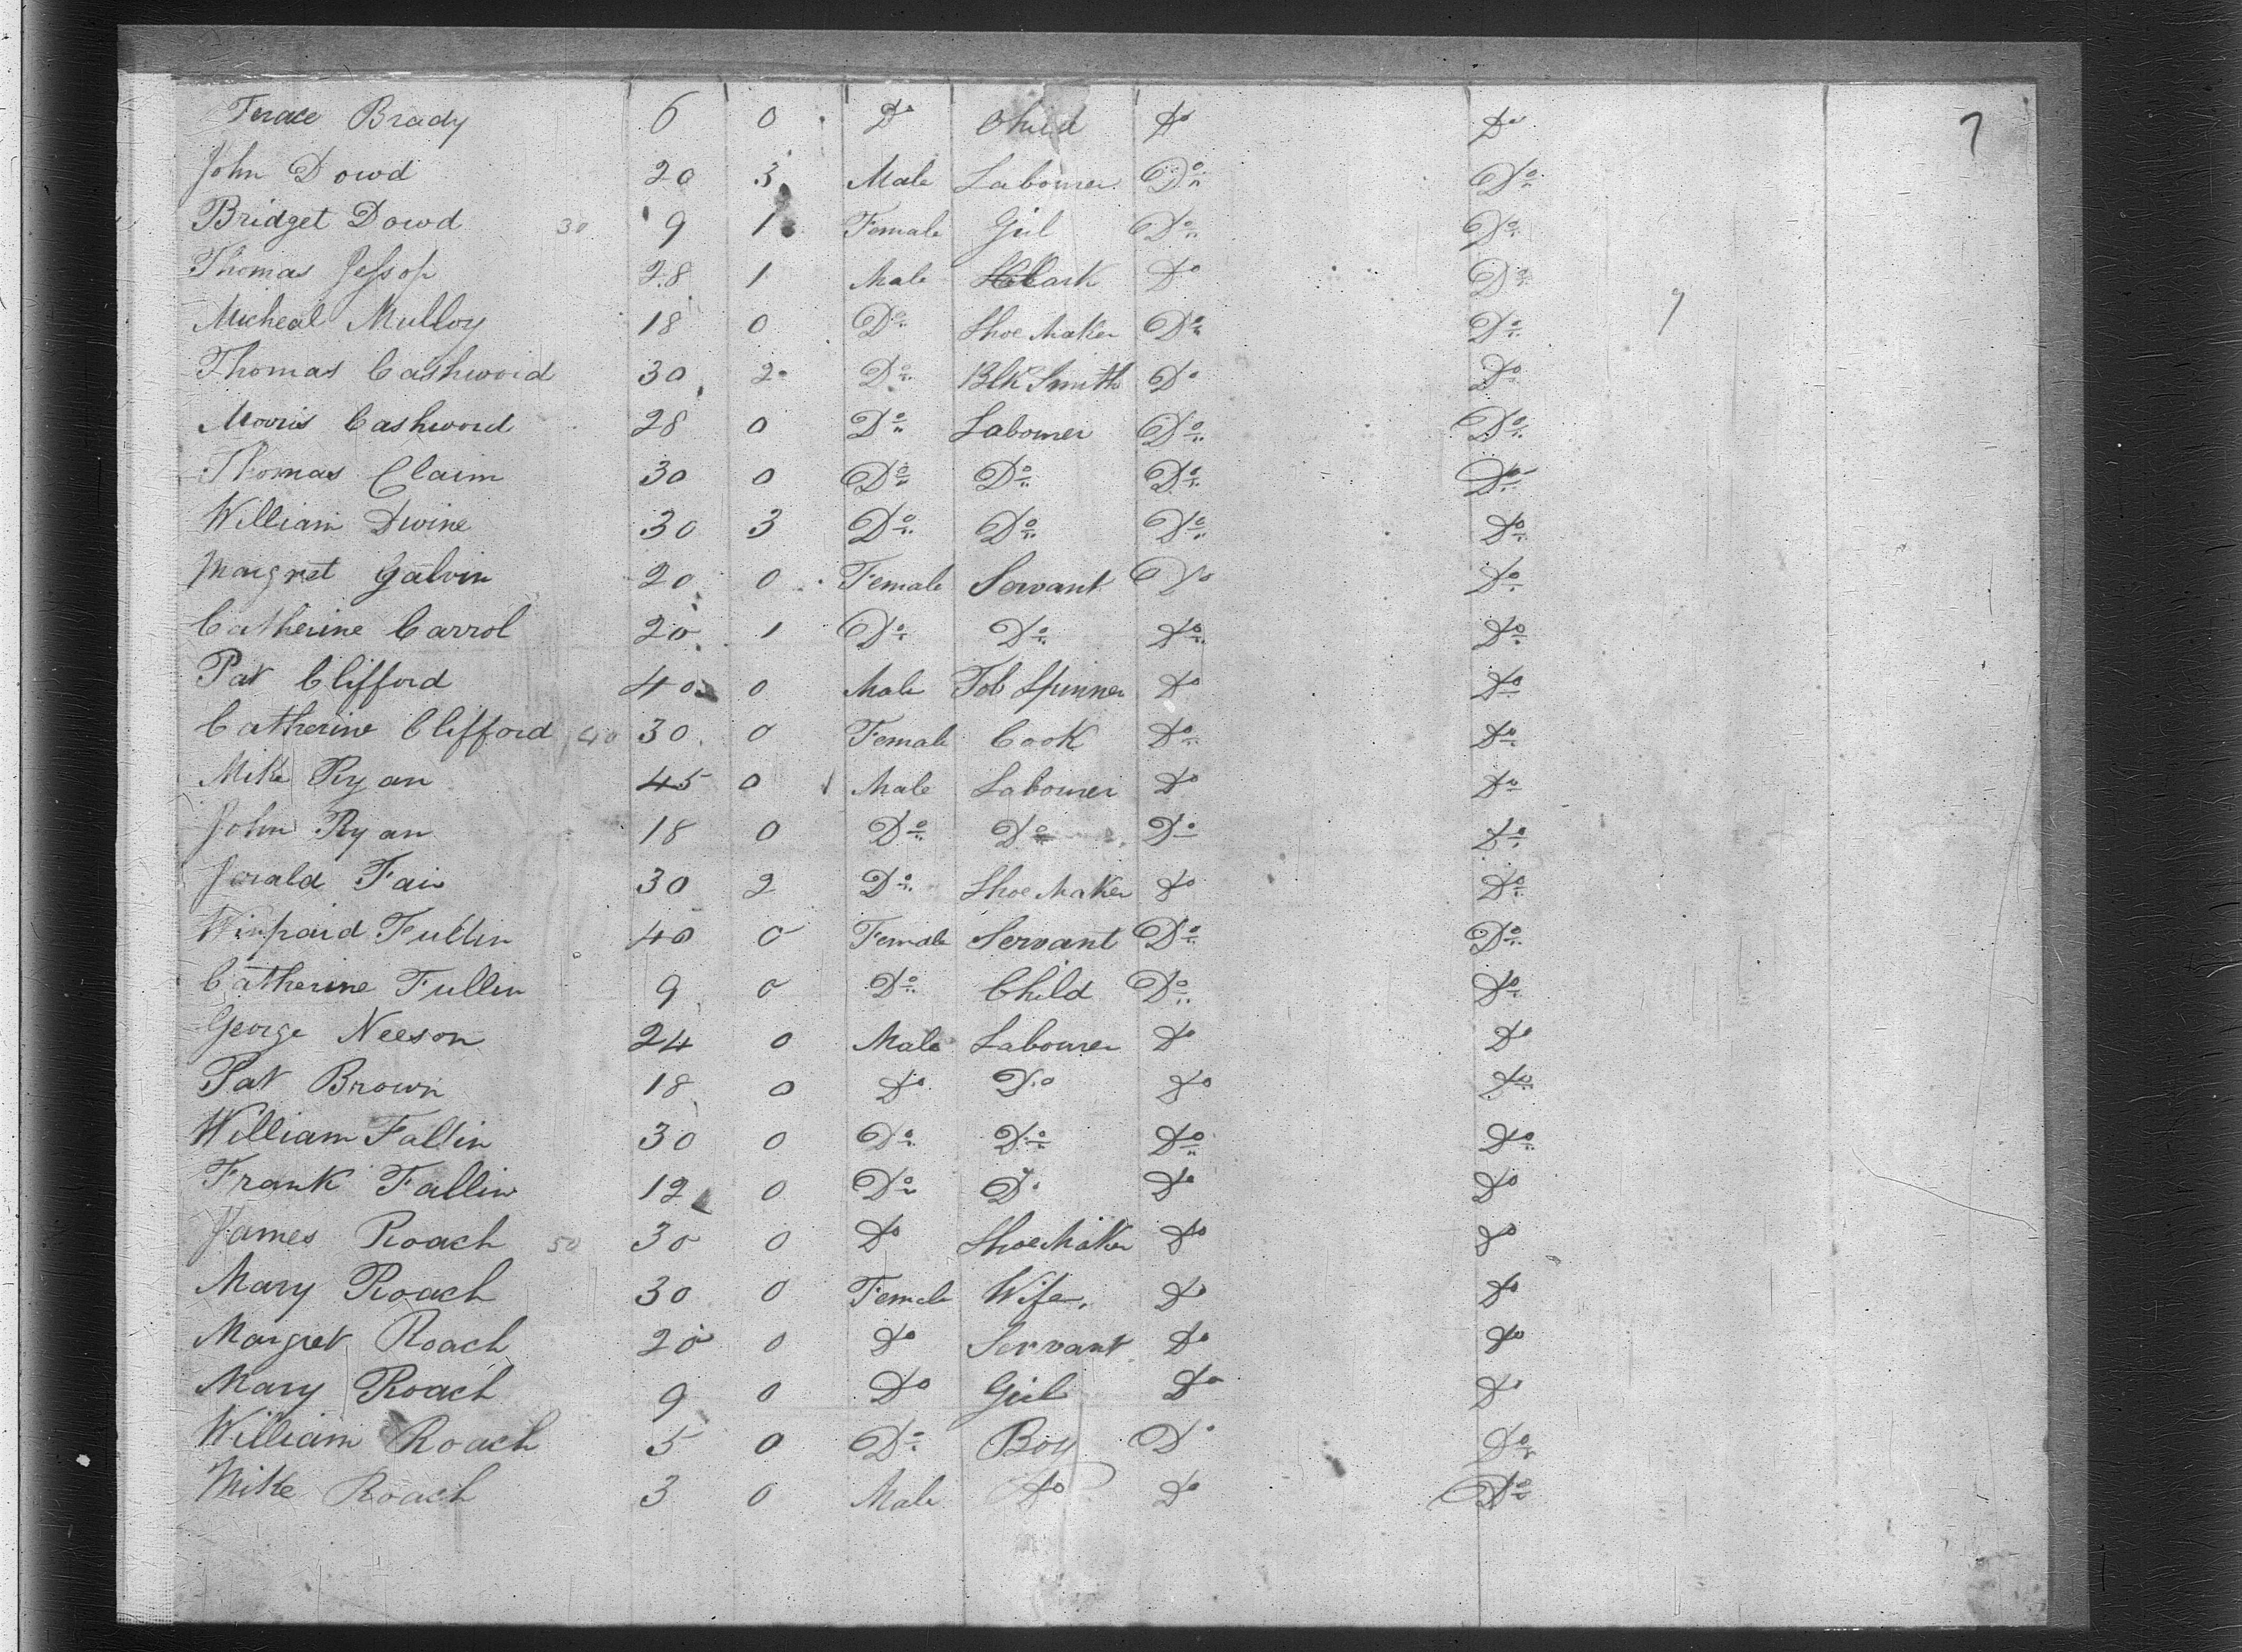 Terace Brady 6 0 Do Child Do Do 7
John Dowd 20 3 Male Labourer Do Do
Bridget Dowd 30 9 1 Female Girl Do Do
Thomas Jessop 28 1 Male Clark Do Do
Micheal Mulloy 18 0 Do Shoe Maker Do Do 7
Thomas Cashword 30 2 Do Blk Smith Do Do
Morris Cashword 28 0 Do Labourer Do Do
Thomas Claim 30 0 Do Do Do Do
William Dwine 30 3 Do Do Do Do
Margret Galvin 20 0 Female Servant Do Do
Catherine Carrol 20 1 Do Do Do Do
Pat Clifford 40 0 Male Tob Spinner Do Do
Catherine Clifford 40 30 0 Female Cook Do Do
Mike Ryan 45 0 Male Labourer Do Do
John Ryan 18 0 Do Do Do Do
Jerald Fair 30 2 Do Shoe Maker Do Do
Fullin 40 0 Female Servant Do Do
Catherine Fullin 9 0 Do Child Do Do
George Neeson 24 0 Male Labourer Do Do
Pat Brown 18 0 Do Do Do Do
William Fallin 30 0 Do Do Do Do
Frank Fallin 12 0 Do Do Do Do
James Roach 50 30 0 Do Shoe Maker Do Do
Mary Roach 30 0 Female Wife Do Do
Margret Roach 20 0 Do Servant Do Do
Mary Roach 9 0 Do Girl Do Do
William Roach 5 0 Do Boy Do Do
Mike Roach 3 0 Male Do Do Do